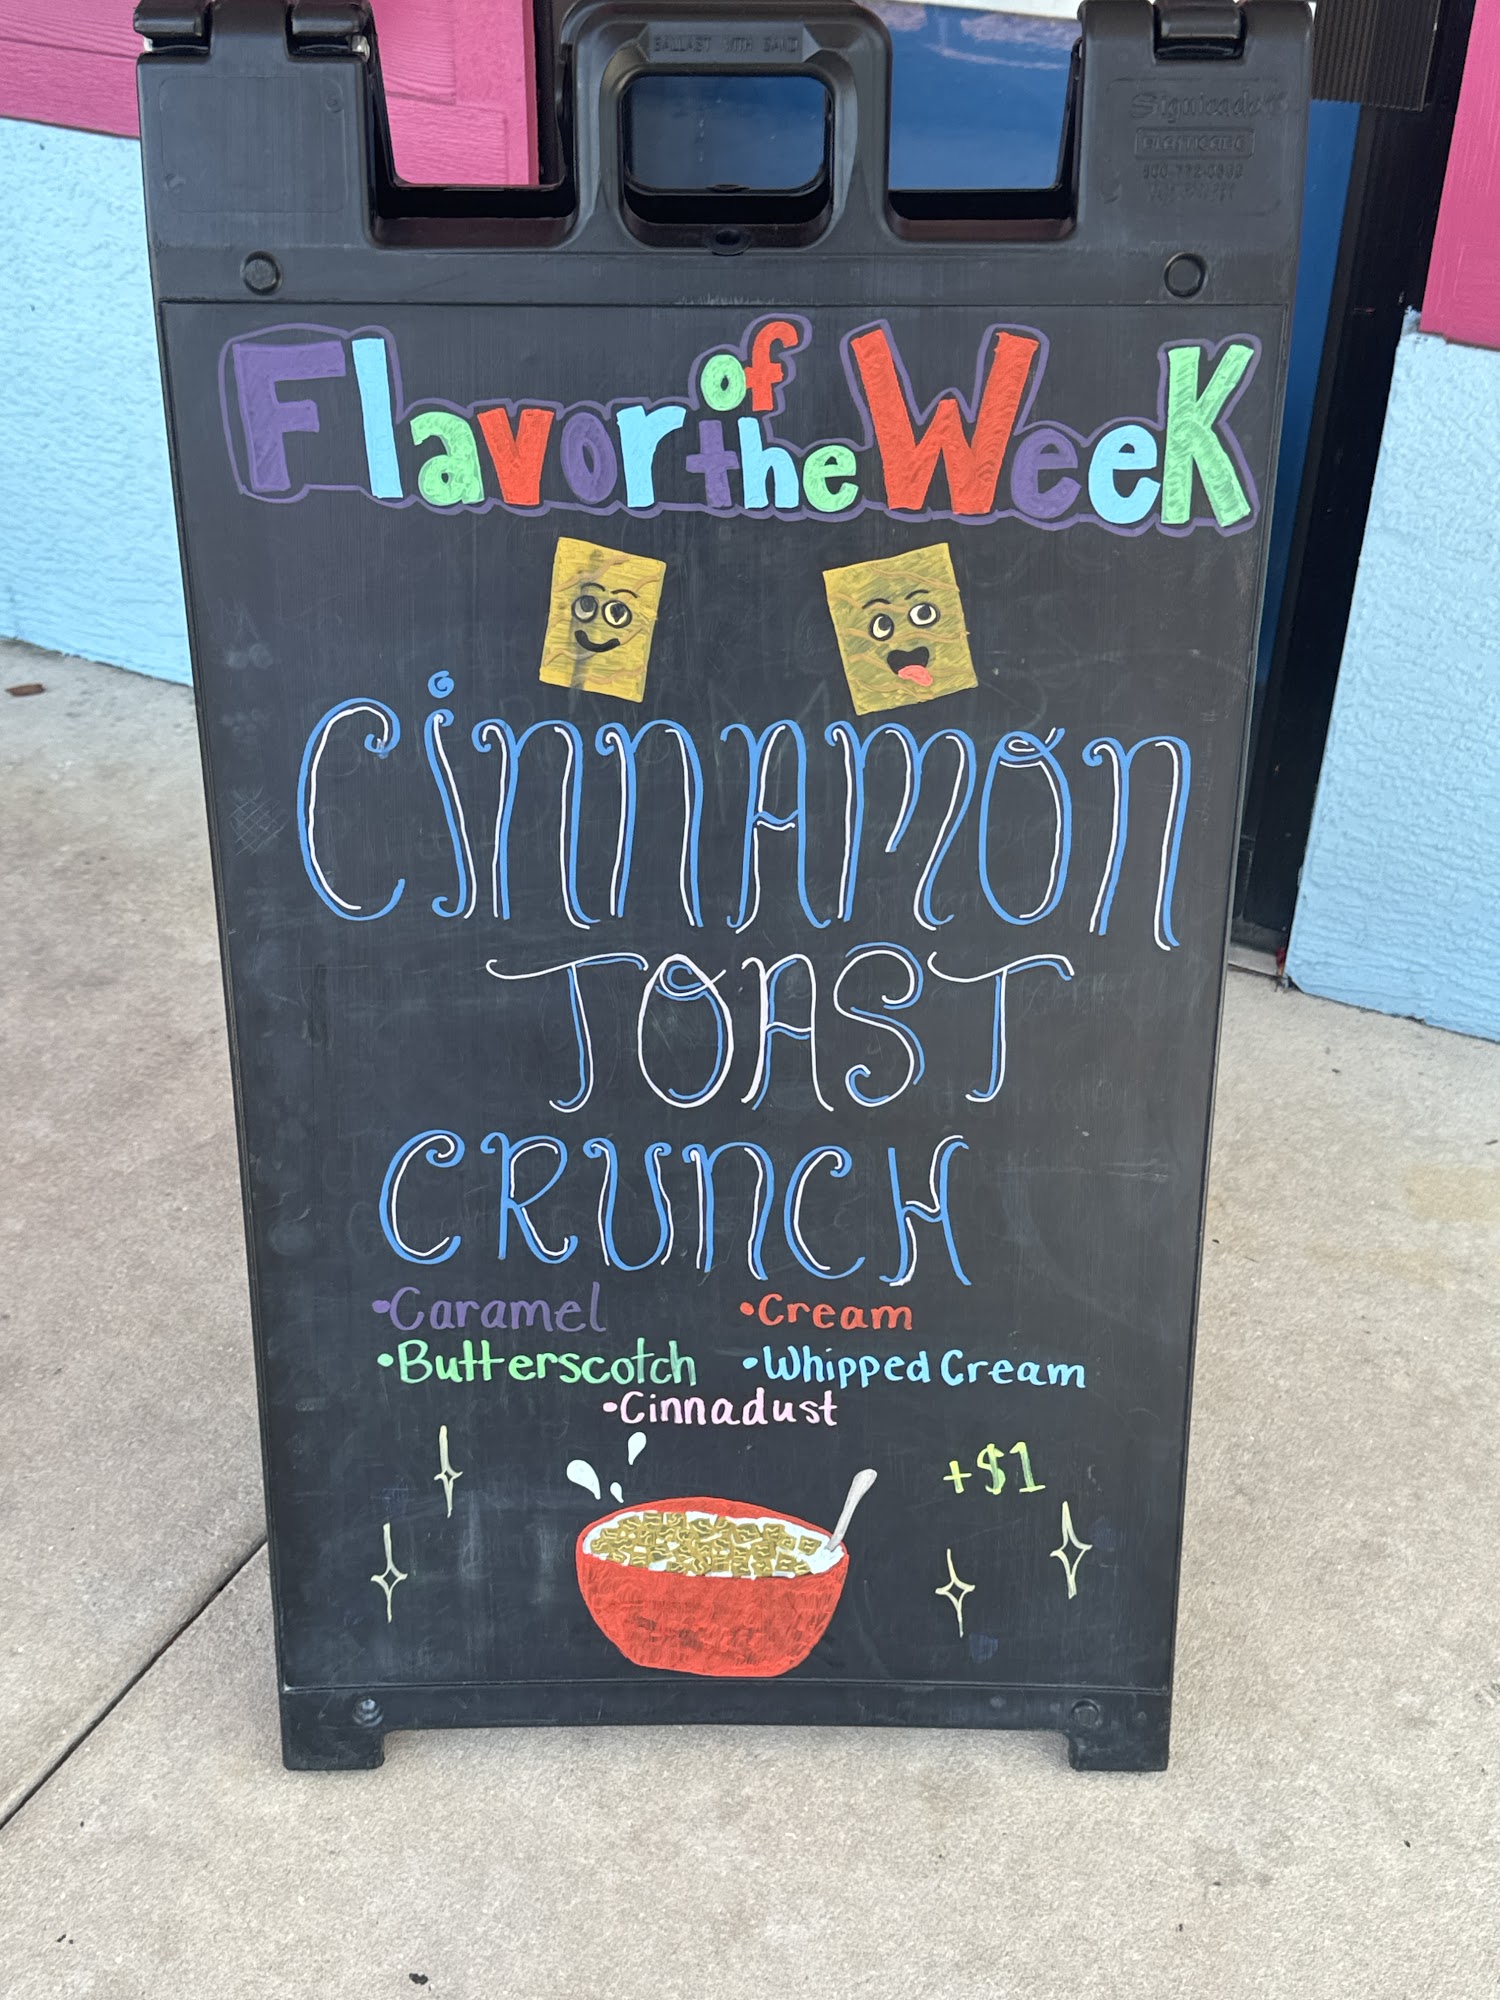 BALLAST WITH SAND
Signicade
PLASTICADE
Flavor of the Week
Cinnamon
Toast
Crunch
•Caramel •Cream
•Butterscotch •Whipped Cream
•Cinnadust
+$1